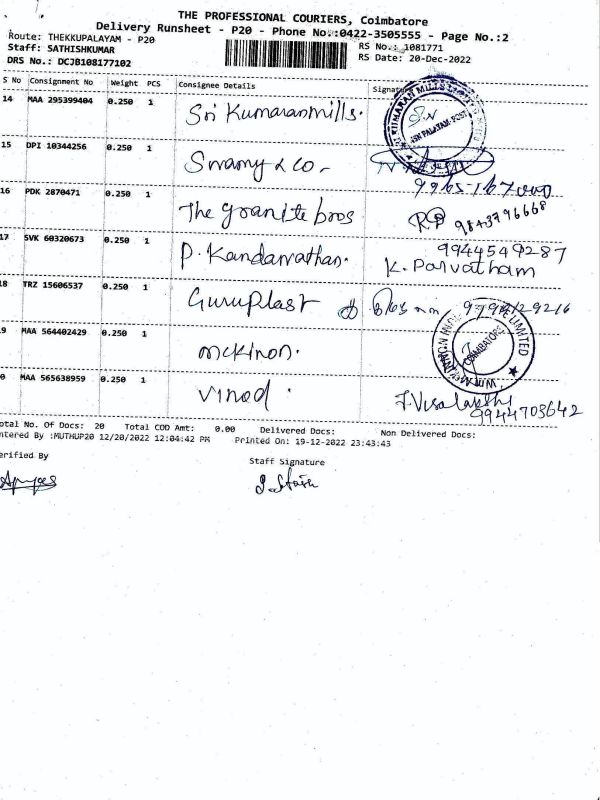 THE PROFESSIONAL COURIERS, Coimbatore
Delivery Runsheet - P20 - Phone No.:0422-3505555 - Page No.:2
Route: THEKKUPALAYAM - P20
Staff: SATHISHKUMAR
DRS No.: DCJB108177102
RS No.: 1081771
RS Date: 20-Dec-2022
S No Consignment No Weight PCS Consignee Details Signatu
14 MAA 295399404 0.250 1 Sri Kumaranmills.
15 DPI 10344256 0.250 1 Swamy & co -
16 PDK 2870471 0.250 1 The granite bros
9843796668
17 SVK 60320673 0.250 1 P. Kandarvathan. 9944549287
K. Parvatham
8 TRZ 15606537 0.250 1 Guruplast
9 MAA 564402429 0.250 1 mckinon.
COIMBATORE
0 MAA 565638959 0.250 1 vinod. J.Visalakshi
9944703642
otal No. Of Docs: 20 Total COD Amt: 0.00 Delivered Docs: Non Delivered Docs:
ntered By :MUTHUP20 12/20/2022 12:04:42 PM Printed On: 19-12-2022 23:43:43
erified By
Staff Signature